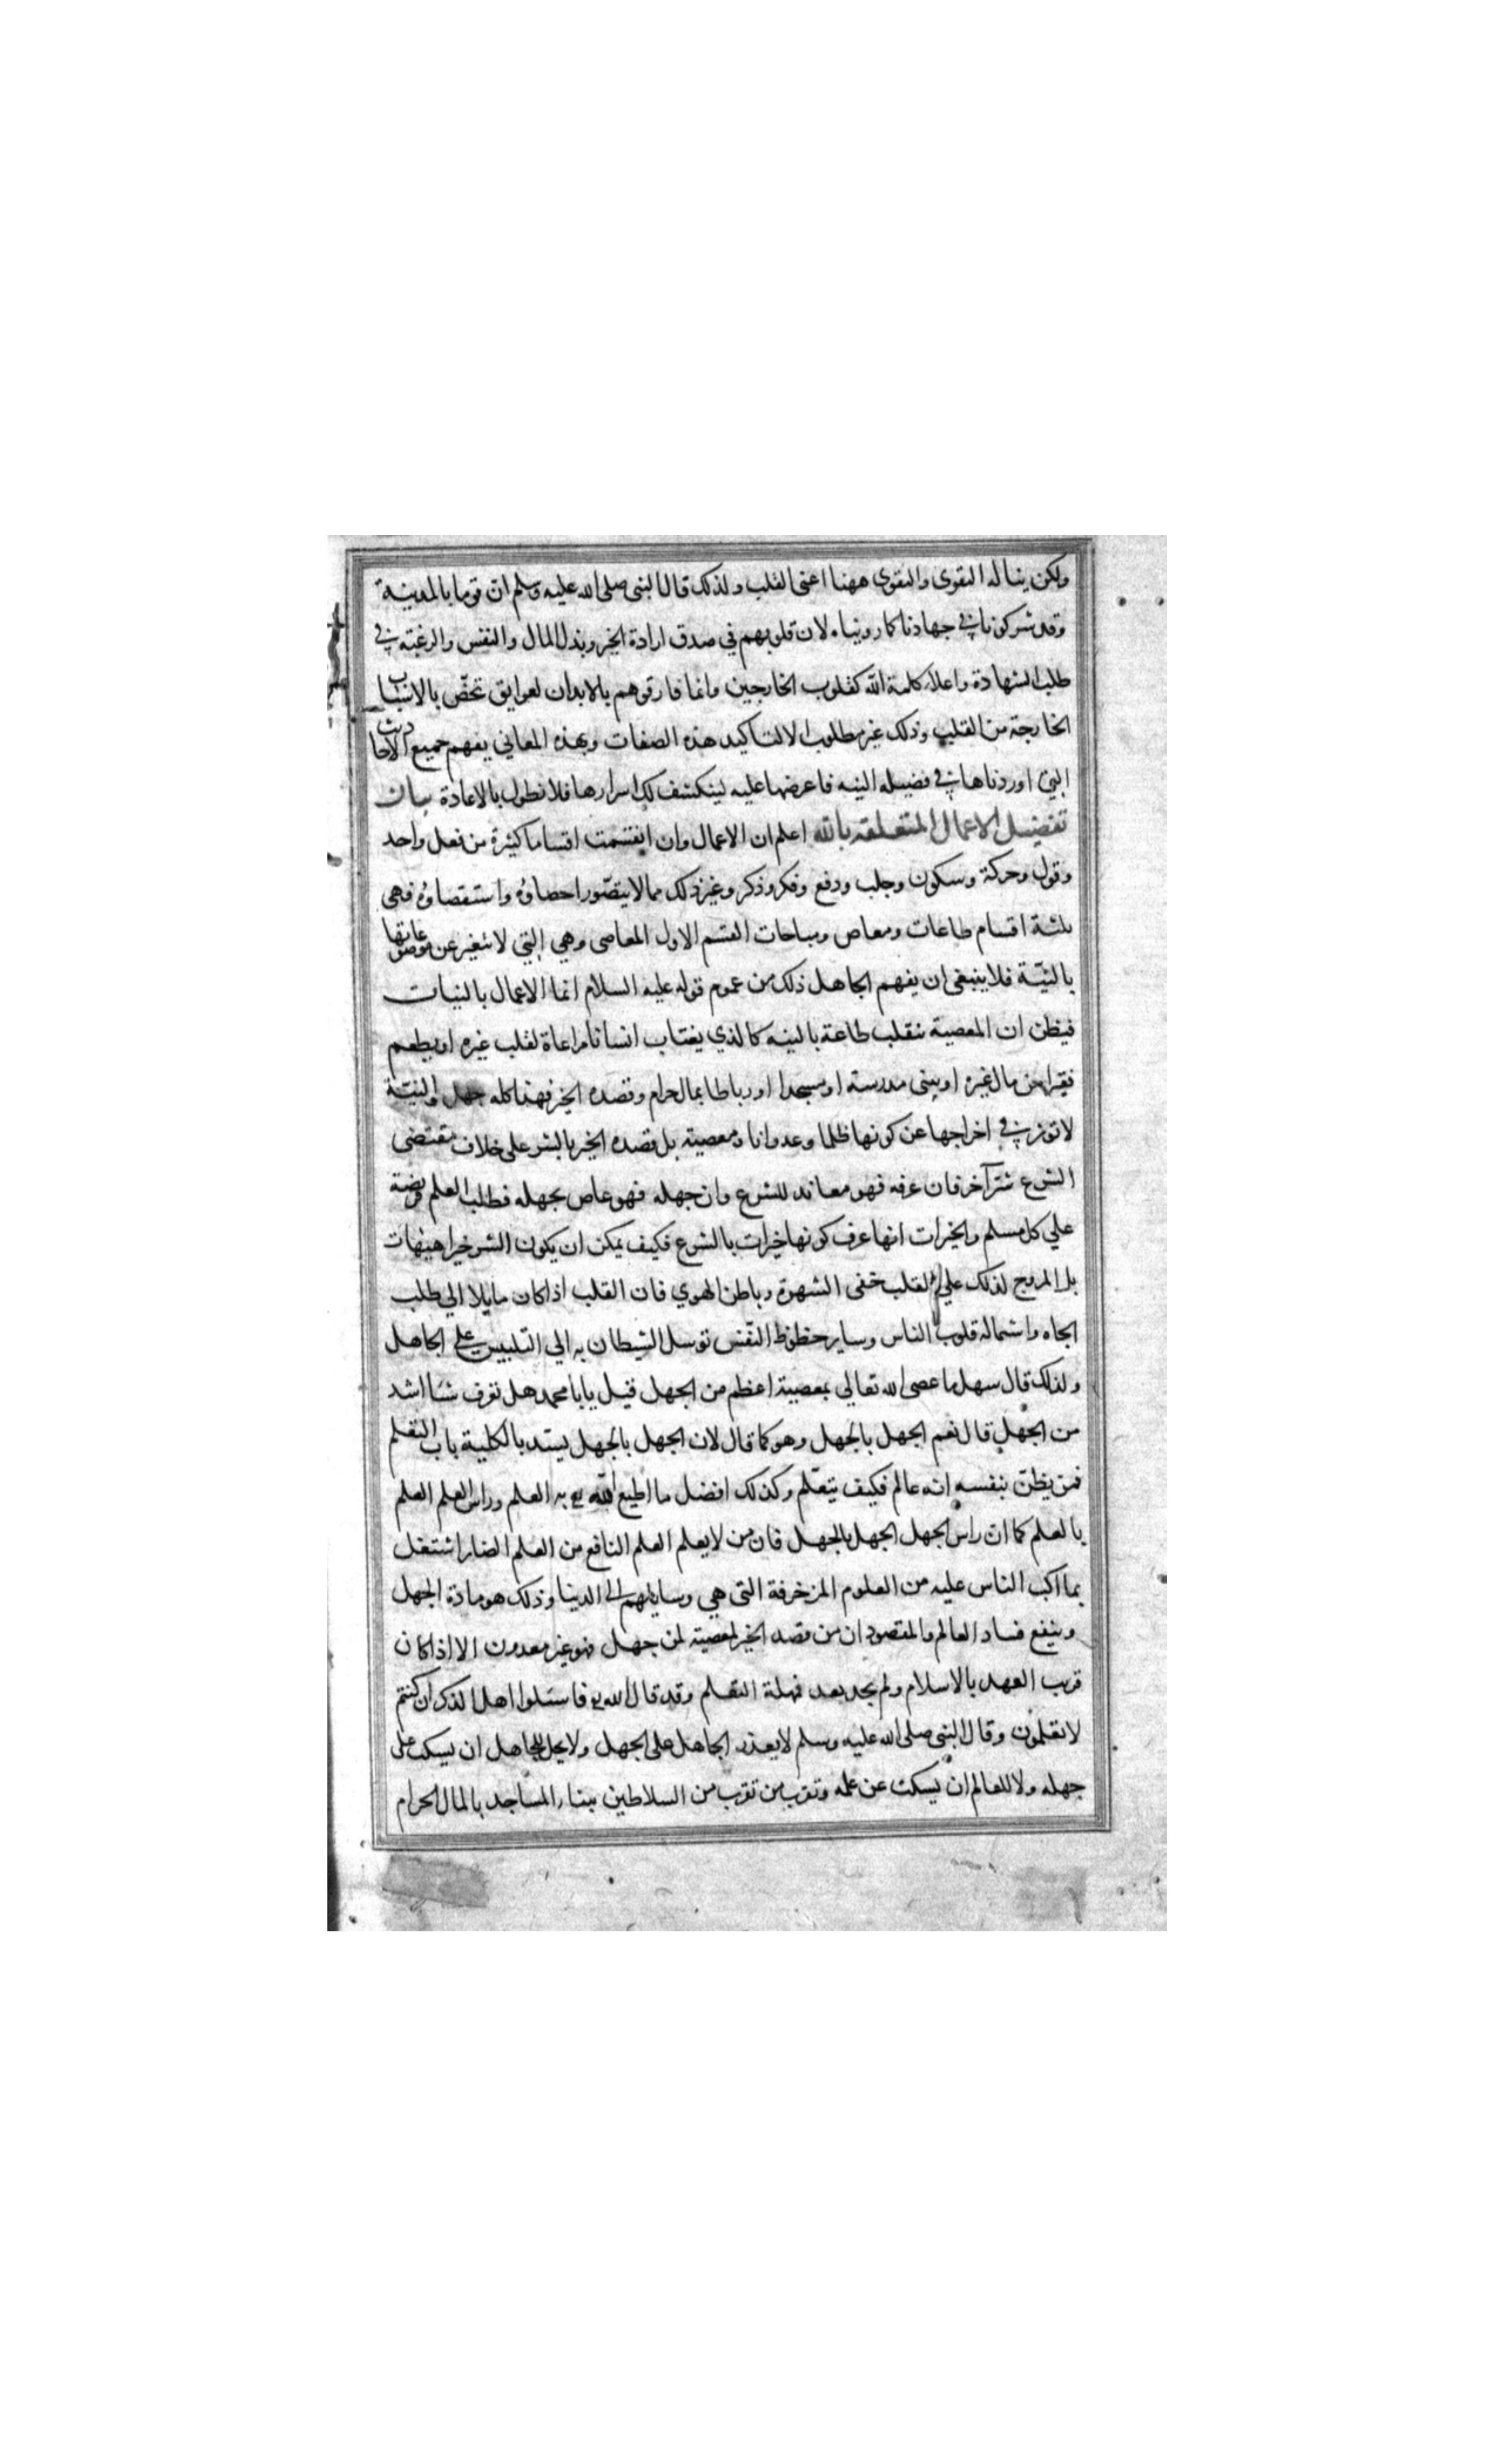 ولكن يناله التقوى والتقوى ههنا اعنى القلب ولذلك قال النبى صلى الله عليه وسلم ان قوما بالمدينة
وقد شركونا في جهادنا كما رويناه لان قلوبهم في صدق ارادة الخير وبذل المال والنفس والرغبة في
طلب الشهادة واعلاء كلمة الله كقلوب الخارجين وانما فارقوهم بالابدان لعوايق تخصّ بالاسباب
الخارجة من القلب وذلك غير مطلوب الا لتاكيد هذه الصفات وبهذه المعاني يفهم جميع الاحاديث
التي اوردناها في فضيله النيه فاعرضها عليه لينكشف لك اسرارها فلا نطول بالاعادة بيان
تفضيل الاعمال المتعلقه بالله اعلم ان الاعمال وان انقسمت اقساما كثيرة من فعل واحد
وقول وحركة وسكون وجلب ودفع وفكر وذكر وغير ذلك مما لا يتصّور احصاؤه واستقصاؤه فهى
ثلثة اقسام طاعات ومعاص ومباحات القسم الاول المعاصى وهي التي لا تتغير عن موضوعاتها
بالنيّة فلا ينبغى ان يفهم الجاهل ذلك من عموم قوله عليه السلام انما الاعمال بالنيات
فيظن ان المعصية تنقلب طاعة بالنيه كالذي يغتاب انسانا مراعاة لقلب غيره او يطعم
فقيرا من مال غيره او يبنى مدرسته او مسجدا او رباطا بمال حرام وقصده الخير فهذا كله جهل والنيّة
لا تؤثر في اخراجها عن كونها ظلما وعدوانا ومعصيته بل قصده الخير بالشر على خلاف مقتضى
الشرع شرّ آخر فان عرفه فهو معاند للشرع وان جهله فهو عاص بجهله فطلب العلم فريضة
علي كل مسلم والخيرات انها عرف كونها خيرات بالشرع فكيف يمكن ان يكون الشر خيرا هيهات
بل المروج لذلك علي القلب خفى الشهوة وباطن الهوي فان القلب اذا كان مايلا الي طلب
الجاه واستماله قلوب الناس وساير حظوظ النّفس توسل الشيطان به الي التلبيس علي الجاهل
ولذلك قال سهل ما عصى الله تعالي بمعصية اعظم من الجهل قيل يابا محمد هل تعرف شيئا اشد
من الجهل قال نعم الجهل بالجهل وهو كما قال لان الجهل بالجهل يسد بالكلية باب التعلم
فمن يظنّ بنفسه انه عالم فكيف يتعّلم وكذلك افضل ما اطيع الله به العلم وراس العلم العلم
بالعلم كما ان راس الجهل الجهل بالجهل فان من لا يعلم العلم النافع من العلم الضار اشتغل
بما اكب الناس عليه من العلوم المزخرفة التى هي وسايلهم الى الدنيا وذلك هو مادة الجهل
ومنبع فساد العالم والمقصود ان من قصد الخير لمعصية لمن جهل فهو غير معذور الا اذا كان
قريب العهد بالاسلام ولم يجد بعد مهلة التعلم وقد قال الله فاسئلوا اهل الذكر ان كنتم
لا تعلمون وقال النبى صلى الله عليه وسلم لا يعذر الجاهل على الجهل ولا يحل للجاهل ان يسكت على
جهله ولا للعالم ان يسكت عن علمه وتقرب من تقرب من السلاطين ببناء المساجد بالمال الحرام